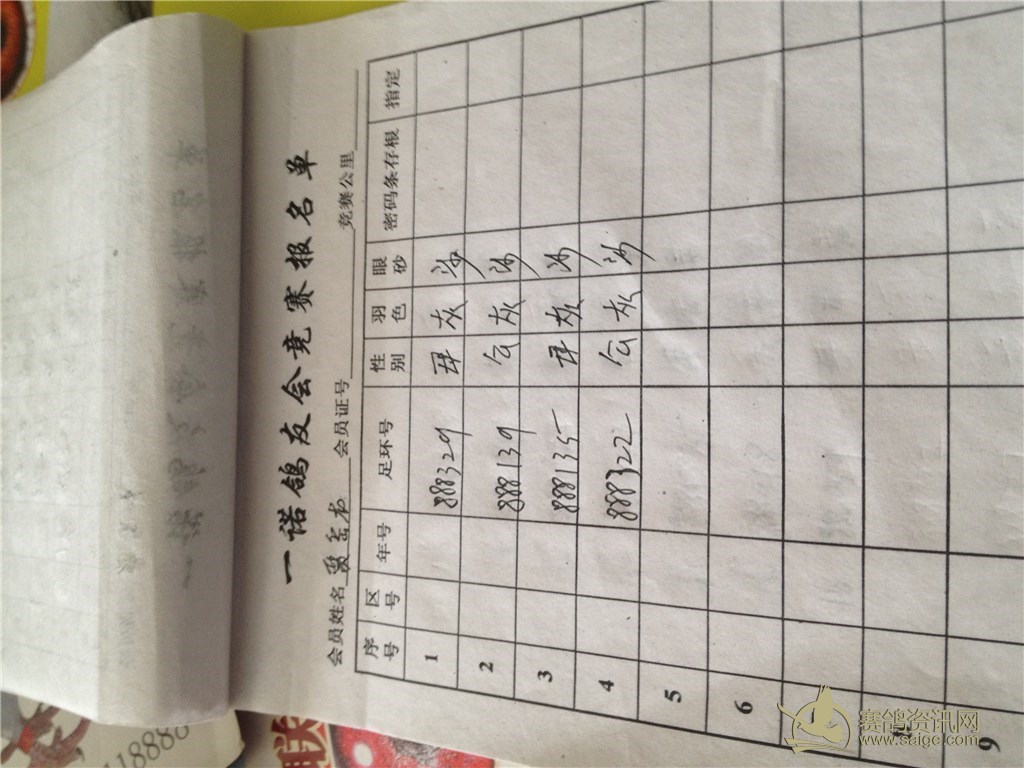 一诺鸽友会竞赛报名单
会员姓名 会员证号 竞赛公里
序号 区号 年号 足环号 性别 羽色 眼砂 密码条存根 指定
1 888329 灰 沙
2 888139 灰 沙
3 888135 灰 沙
4 888322 灰 沙
5
6
9
赛鸽资讯网
www.saige.com
118888
联